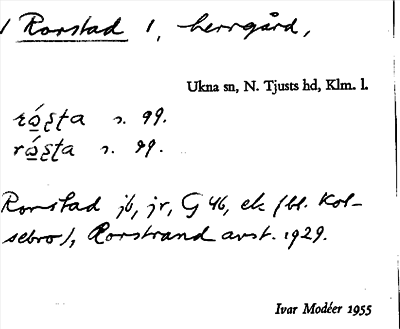 Rorstad 1, herrgård,
Ukna sn, N. Tjusts hd, Klm. l.
s. 99.
s. 99.
Rorstad jb, jr, G 46, ek (bl. Kol-
sebro), Rorstrand avst. 1929.
Ivar Modéer 1955